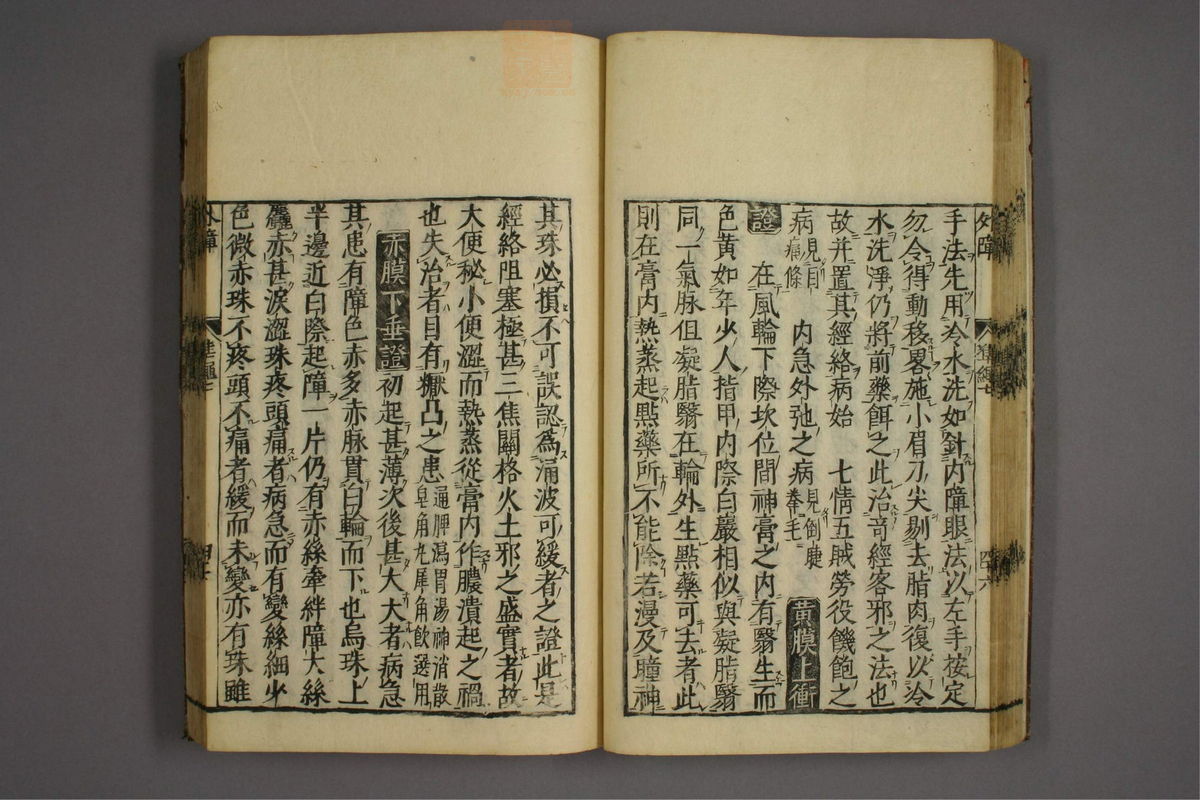 手法先用冷水洗如針內障眼法以左手按定
勿令得動移畧施小眉刀尖剔去脂肉復以冷
水洗淨仍將前藥餌之此治奇經客邪之法也
故并置其經絡病始　七情五賊勞役饑飽之
病見目痛條　內急外弛之病見倒睫拳毛　黃膜上衝
證
在風輪下際坎位間神膏之內有翳生而
色黃如年少人指甲內際白巖相似與凝脂翳
同一氣脉但凝脂翳在輪外生點藥可去者此
則在膏內熱蒸起點藥所不能除若漫及瞳神
其珠必損不可誤認為湧波可緩者之證此是
經絡阻塞極甚三焦關格火土邪之盛實者故
大便秘小便澀而熱蒸從膏內作膿潰起之禍
也失治者目有凸之患通脾瀉胃湯神消散皂角丸犀角飲選用
赤膜下垂證初起甚薄次後甚大大者病急
其患有障色赤多赤脉貫白輪而下也烏珠上
半邊近白際起障一片仍有赤絲牽絆障大絲
麤赤甚淚澀珠疼頭痛者病急而有變絲細少
色微赤珠不疼頭不痛者緩而未變亦有珠雖
外障
四六
外障
四七